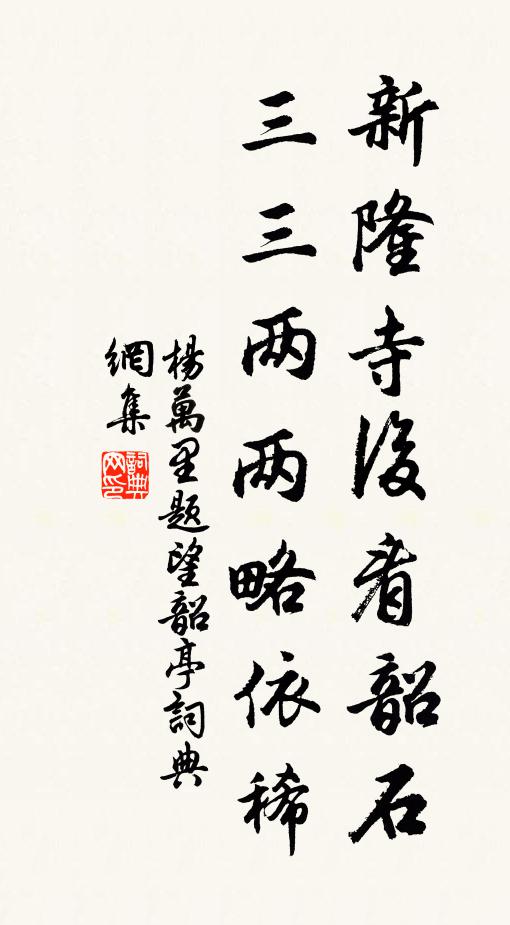 新隆寺後看韶石
三三两两略依稀
楊萬里题望韶亭詞典
網集
詞典
网印